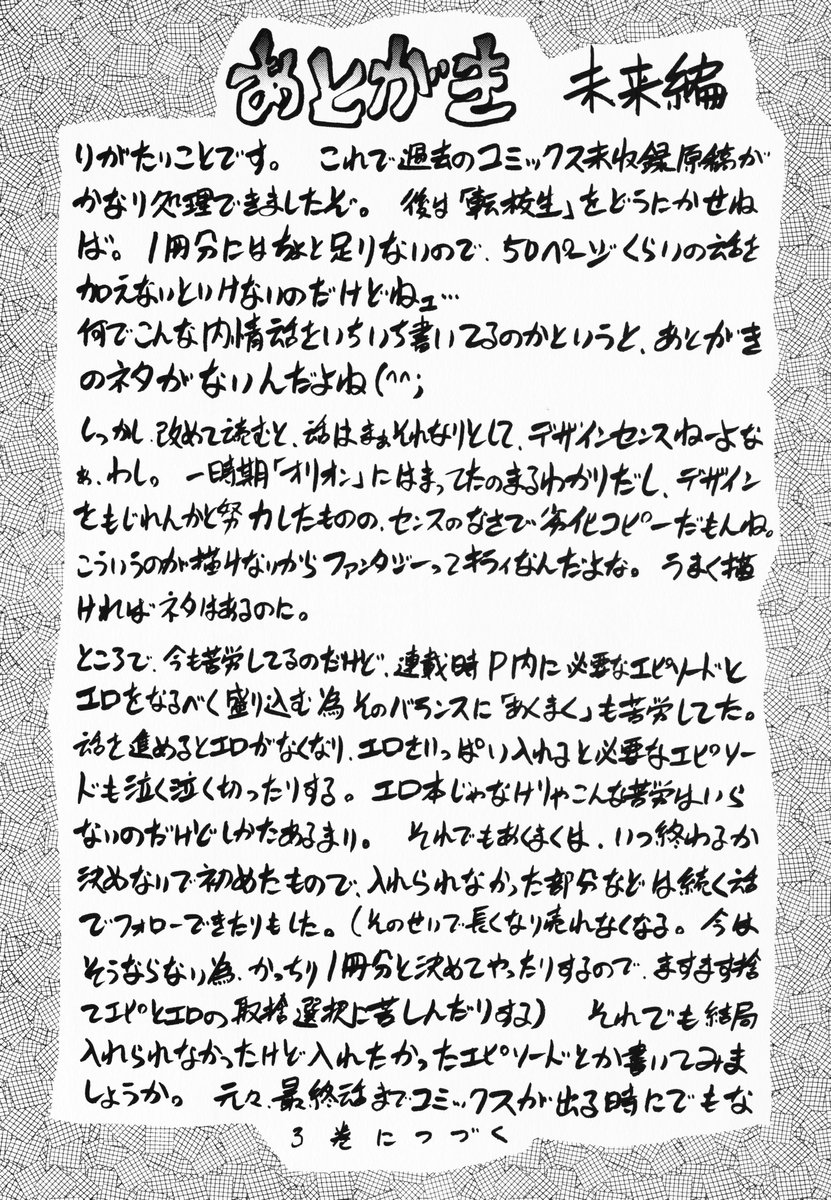 あとがき 未来編
りがたいことです。 これで過去のコミックス未収録原稿が
かなり処理できましたぞ。 後は「転校生」をどうにかせね
ば。 1冊分にはちと足りないので、50ページくらいの話を
加えないといけないのだけどねェ…
何でこんな内情話をいちいち書いてるのかというと、あとがき
のネタがないんだよね(^^;
しっかし、改めて読むと、話はまぁそれなりとして、デザインセンスねーよな
ぁ、わし。 一時期「オリオン」にはまってたのまるわかりだし、デザイン
をもじれんかと努力したものの、センスのなさで劣化コピーだもんね。
こういうのが描けないからファンタジーってキライなんだよな。 うまく描
ければネタはあるのに。
ところで、今も苦労してるのだけど、連載時P内に必要なエピソードと
エロをなるべく盛り込む為そのバランスに「あくまく」も苦労してた。
話を進めるとエロがなくなり、エロをいっぱい入れると必要なエピソー
ドも泣く泣く切ったりする。 エロ本じゃなけりゃこんな苦労はいら
ないのだけどしかたあるまい。 それでもあくまくは、いつ終わるか
決めないで初めたもので、入れられなかった部分などは続く話
でフォローできたりもした。(そのせいで長くなり売れなくなる。今は
そうならない為、かっちり1冊分と決めてやったりするので、ますます捨
てエピとエロの取捨選択に苦しんだりする) それでも結局
入れられなかったけど入れたかったエピソードとか書いてみま
しょうか。 元々、最終話までコミックスが出る時にでもな
3巻につづく